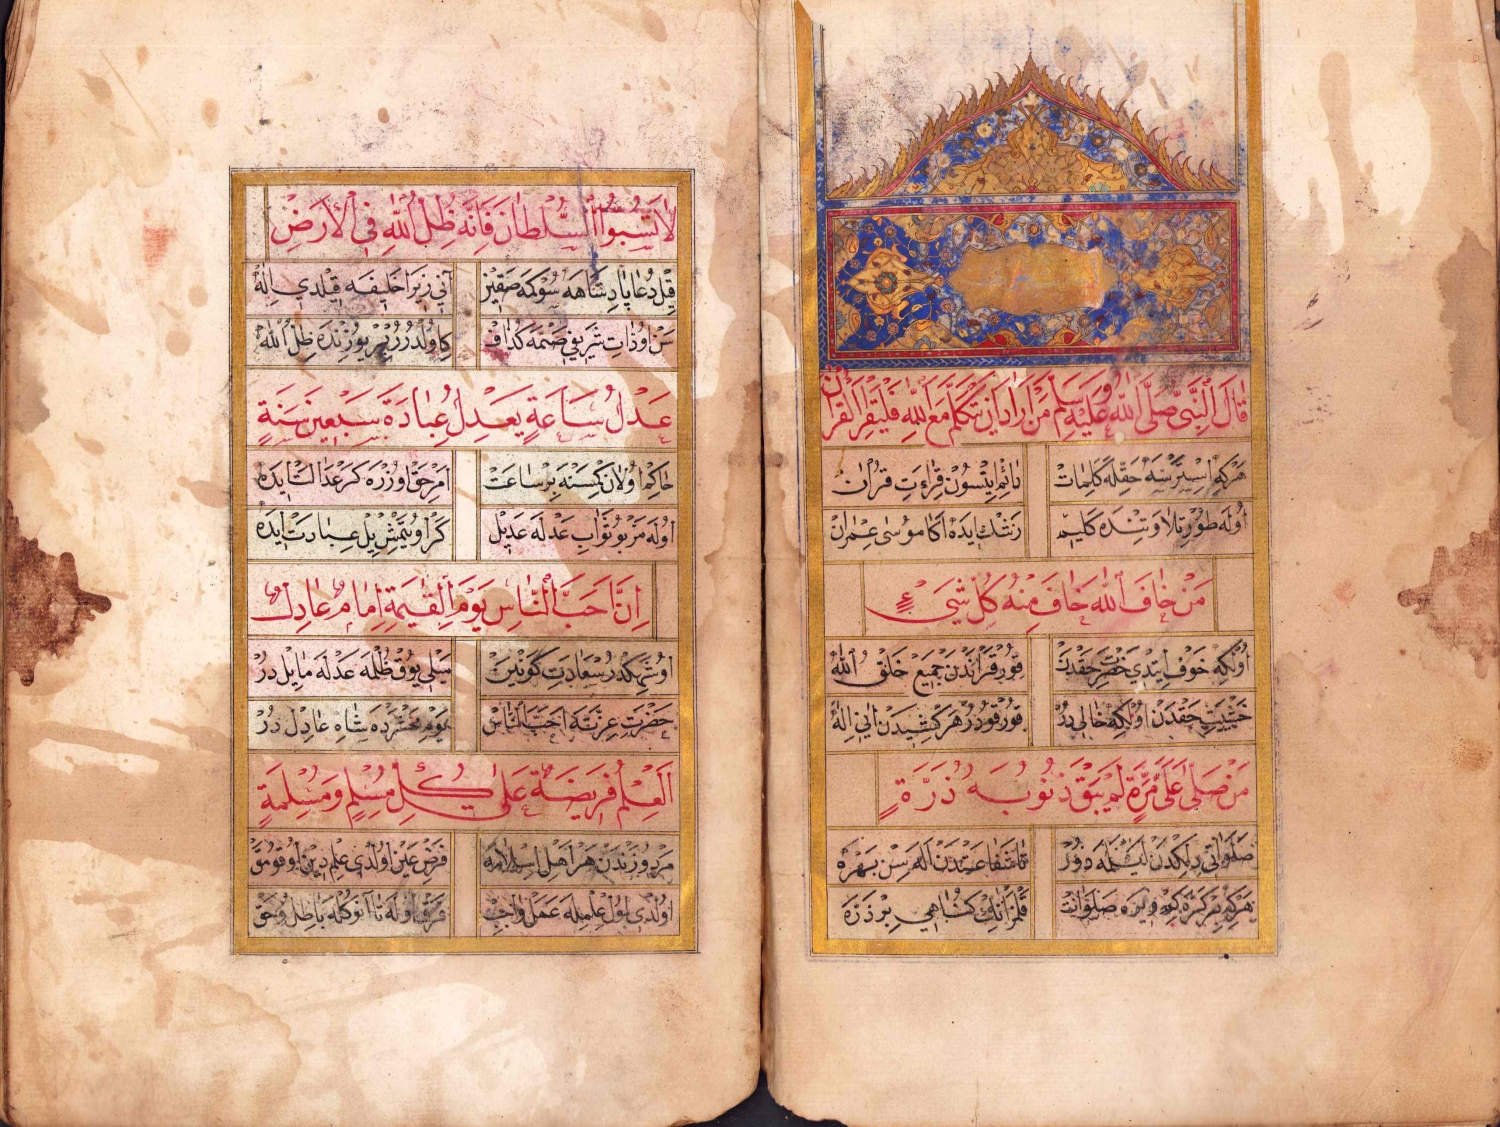 قَالَ النَّبِيُّ صَلَّى اللّٰهُ عَلَيْهِ وَسَلَّمَ مَنْ اَرَادَ اَنْ يَتَكَلَّمَ مَعَ اللّٰهِ فَلْيَقْرَإِ الْقُرْاٰنَ
هركه استرسه حقله كلمات دائم ايتسون قراءت قرآن
اوله طور تلاوتنده كليم رشك ايده اكا موسى عمران
مَنْ خَافَ اللّٰهَ خَافَ مِنْهُ كُلُّ شَيْءٍ
اولكه خوف ايتدي حضرت حقدن قورقر اندن جميع خلق الله
خشيت حقدن اولكه خالي در قورقودر هر كشيدن اني اله
مَنْ صَلَّى عَلَيَّ مَرَّةً لَمْ يَبْقَ ذُنُوبُهُ ذَرَّةً
صلواتي دلكدن ايتمه دور تا شفاعتدن اله سن بهره
هركه بر كره كوندره صلوات قلمز انك كناهي بر ذره
لَا تَسُبُّوا السُّلْطَانَ فَاِنَّهُ ظِلُّ اللّٰهِ فِي الْاَرْضِ
قل دعا پادشاهه سوكمه صقين آني زيرا خليفه قيلدي اله
سن او ذات شريفي صنمه كذاف كا ولدرر ير يوزنده ظل الله
عَدْلُ سَاعَةٍ يَعْدِلُ عِبَادَةَ سَبْعِينَ سَنَةٍ
حاكم اولان كمسنه بر ساعت امر حق اوزره كر عدالت ايده
اوله مزبور ثواب عدله عديل كر او يتمش ييل عبادت ايده
اِنَّ اَحَبَّ النَّاسِ يَوْمَ الْقِيٰمَةِ اِمَامٌ عَادِلٌ
اوشهكدر سعادت كونين ميلي يوق ظلمه عدله مايل در
حضرت عزته احب الناس يوم محشرده شاه عادل در
اَلْعِلْمُ فَرِيضَةٌ عَلَى كُلِّ مُسْلِمٍ وَمُسْلِمَةٍ
مرد و زندن هر اهل اسلامه فرض عين اولدي علم دين اوقومق
اولدي بول علميله عمل واجب فرق اوله تا آنوكله باطل و حق